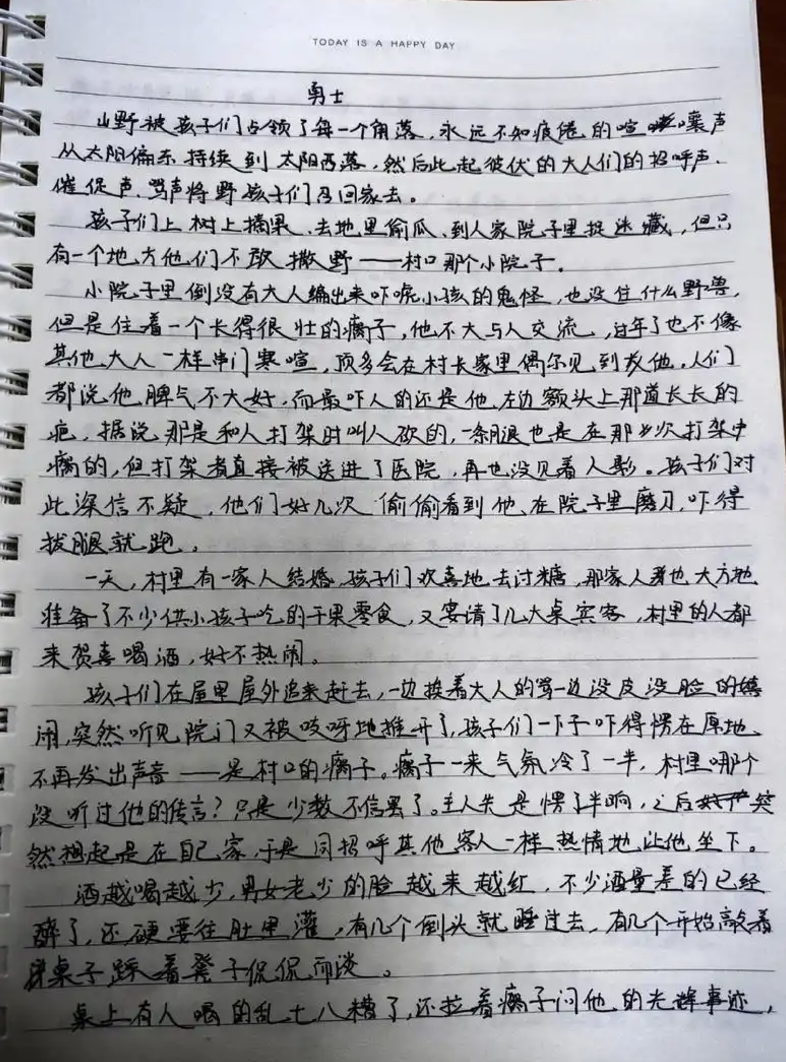 TODAY IS A HAPPY DAY
勇士
山野被孩子们占领了每一个角落，永远不知疲倦的喧嚷声
从太阳偏东持续到太阳西落，然后此起彼伏的大人们的招呼声、
催促声、骂声将野孩子们召回家去。
孩子们上树上摘果、去地里偷瓜、到人家院子里捉迷藏，但只
有一个地方他们不敢撒野——村口那个小院子。
小院子里倒没有大人编出来吓唬小孩的鬼怪，也没住什么野兽，
但是住着一个长得很壮的瘸子，他不大与人交流，过年了也不像
其他大人一样串门寒喧，顶多会在村长家里偶尔见到找他。人们
都说他脾气不大好，而最吓人的还是他左边额头上那道长长的
疤，据说那是和人打架时叫人砍的，一条腿也是在那次打架中
瘸的，但打架者直接被送进了医院，再也没见着人影。孩子们对
此深信不疑，他们好几次偷偷看到他在院子里磨刀，吓得
拔腿就跑。
一天，村里有一家人结婚，孩子们欢喜地去讨糖，那家人也大方地
准备了不少供小孩子吃的干果零食，又宴请了几大桌宾客，村里的人都
来贺喜喝酒，好不热闹。
孩子们在屋里屋外追来赶去，一边挨着大人的骂一边没皮没脸的嬉
闹，突然听见院门又被吱呀地推开了，孩子们一下子吓得愣在原地，
不再发出声音——是村口的瘸子。瘸子一来气氛冷了一半，村里哪个
没听过他的传言？只是少数不信罢了。主人先是愣了半晌，之后突
然想起是在自己家，于是同招呼其他客人一样热情地让他坐下。
酒越喝越少，男女老少的脸越来越红，不少酒量差的已经
醉了，还硬要往肚里灌，有几个倒头就睡过去，有几个开始敲着
桌子踩着凳子侃侃而谈。
桌上有人喝的乱七八糟了，还拉着瘸子问他的光辉事迹，